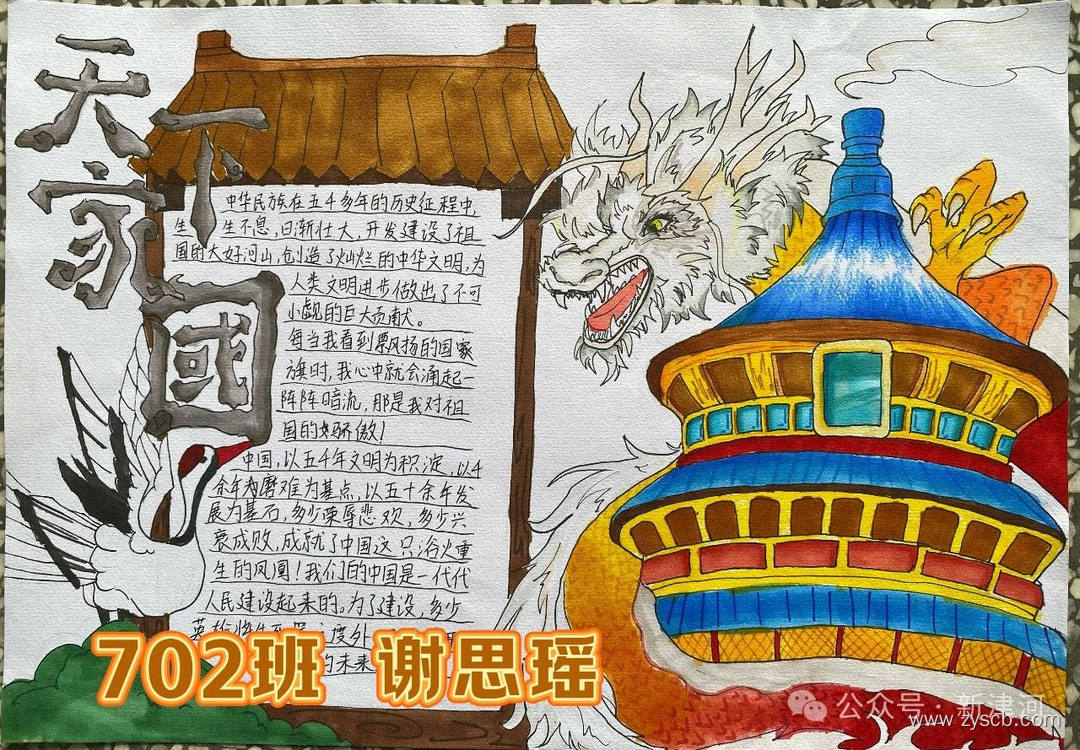 天下
家
國
中华民族在五千多年的历史征程中,
生生不息,日渐壮大,开发建设了祖
国的大好河山,创造了灿烂的中华文明,为
人类文明进步做出了不可
小觑的巨大贡献。
每当我看到飘扬的国家
旗时,我心中就会涌起一
阵阵暗流,那是我对祖
国的骄傲!
中国,以五千年文明为积淀,以4
余年磨难为基点,以五十余年发
展为基石,多少荣辱悲欢,多少兴
衰成败,成就了中国这只浴火重
生的凤凰!我们的中国是一代代
人民建设起来的。为了建设,多少
度外
的未来
702班 谢思瑶
公众号·新津河
www.zyscb.com